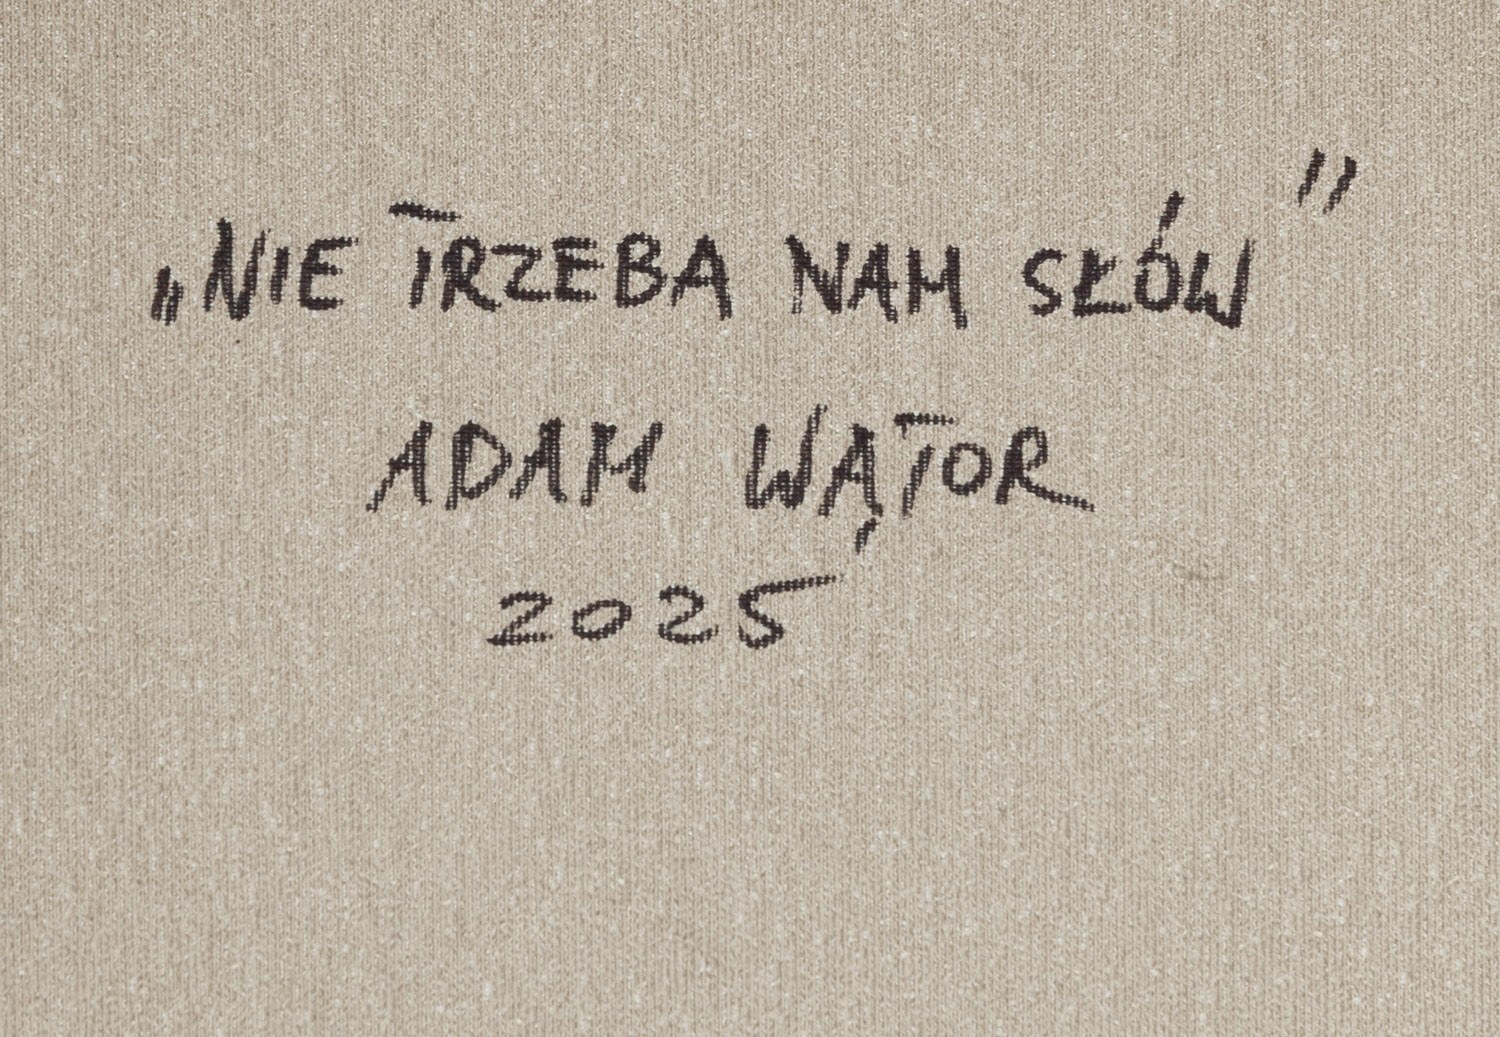 „NIE TRZEBA NAM SŁÓW”
ADAM WĄTOR
2025